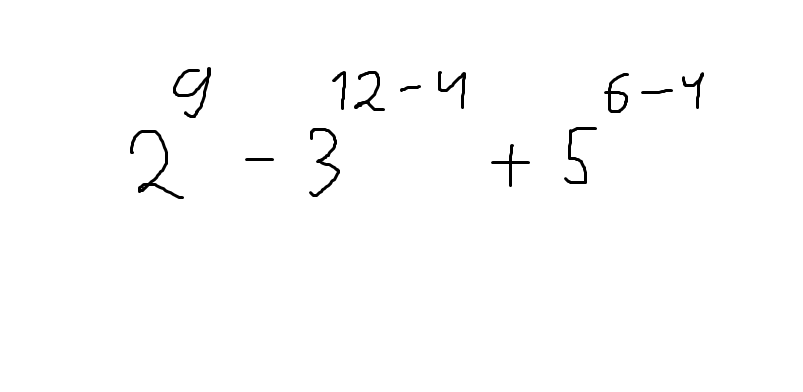 2^9 - 3^{12-4} + 5^{6-4}